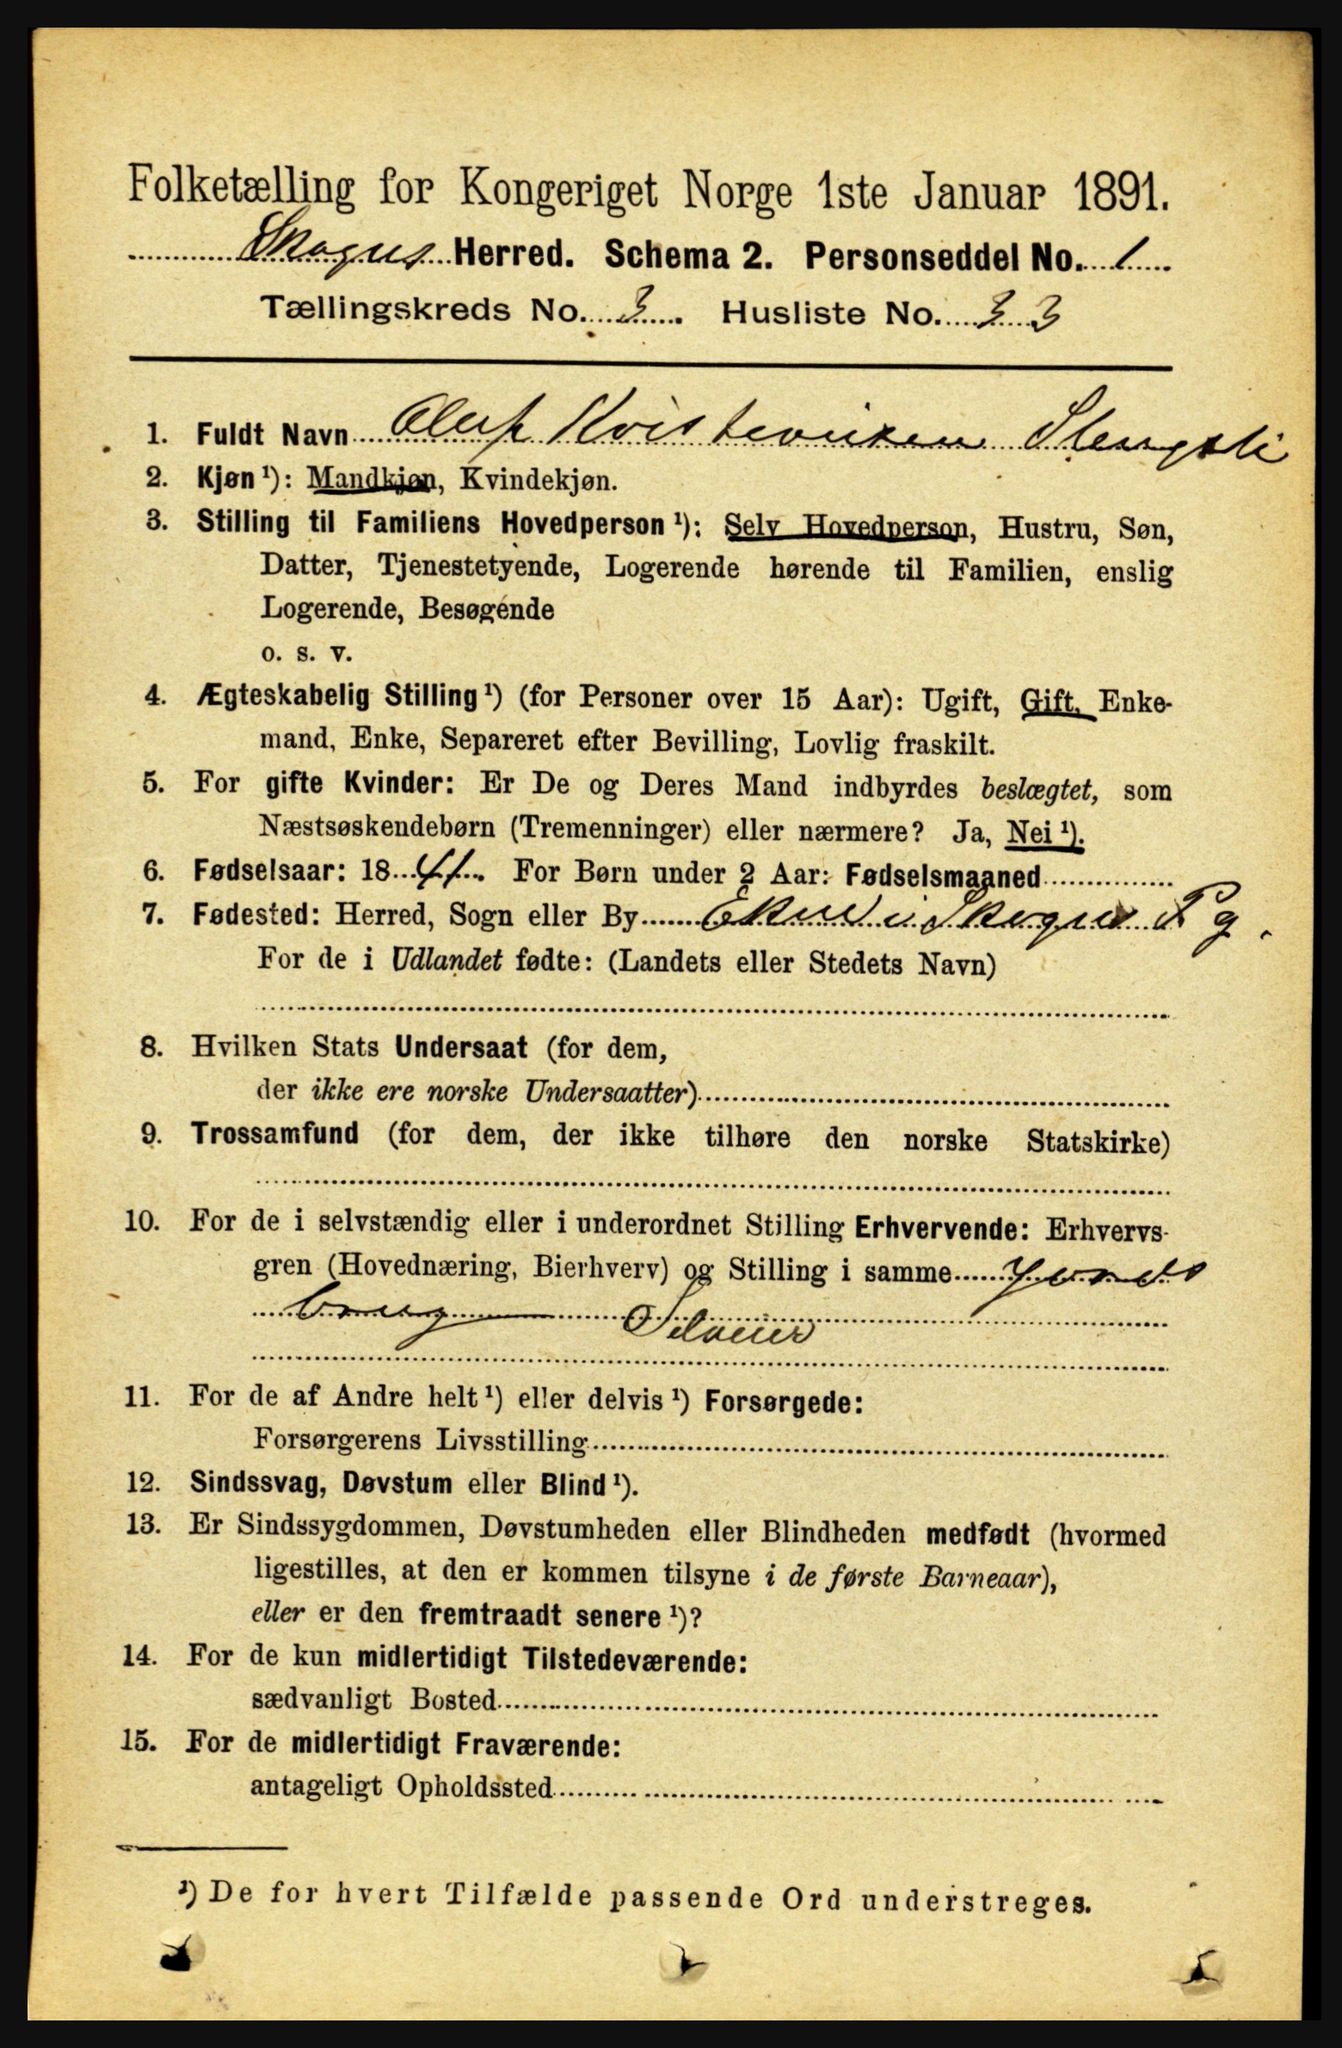 Folketælling for Kongeriget Norge 1ste Januar 1891.
Skogns Herred. Schema 2. Personseddel No. 1
Tællingskreds No. 3. Husliste No. 33
1. Fuldt Navn Oluf Kristensen
2. Kjøn ¹): Mandkjøn, Kvindekjøn.
3. Stilling til Familiens Hovedperson ¹): Selv Hovedperson, Hustru, Søn,
Datter, Tjenestetyende, Logerende hørende til Familien, enslig
Logerende, Besøgende
o. s. v.
4. Ægteskabelig Stilling ¹) (for Personer over 15 Aar): Ugift, Gift, Enke-
mand, Enke, Separeret efter Bevilling, Lovlig fraskilt.
5. For gifte Kvinder: Er De og Deres Mand indbyrdes beslægtet, som
Næstsøskendebørn (Tremenninger) eller nærmere? Ja, Nei ¹).
6. Fødselsaar: 18 41. For Børn under 2 Aar: Fødselsmaaned
7. Fødested: Herred, Sogn eller By Ekne i Skogns Pg.
For de i Udlandet fødte: (Landets eller Stedets Navn)
8. Hvilken Stats Undersaat (for dem,
der ikke ere norske Undersaatter)
9. Trossamfund (for dem, der ikke tilhøre den norske Statskirke)
10. For de i selvstændig eller i underordnet Stilling Erhvervende: Erhvervs-
gren (Hovednæring, Bierhverv) og Stilling i samme Jords
brug
Selveier
11. For de af Andre helt ¹) eller delvis ¹) Forsørgede:
Forsørgerens Livsstilling
12. Sindssvag, Døvstum eller Blind ¹).
13. Er Sindssygdommen, Døvstumheden eller Blindheden medfødt (hvormed
ligestilles, at den er kommen tilsyne i de første Barneaar),
eller er den fremtraadt senere ¹)?
14. For de kun midlertidigt Tilstedeværende:
sædvanligt Bosted
15. For de midlertidigt Fraværende:
antageligt Opholdssted
¹) De for hvert Tilfælde passende Ord understreges.